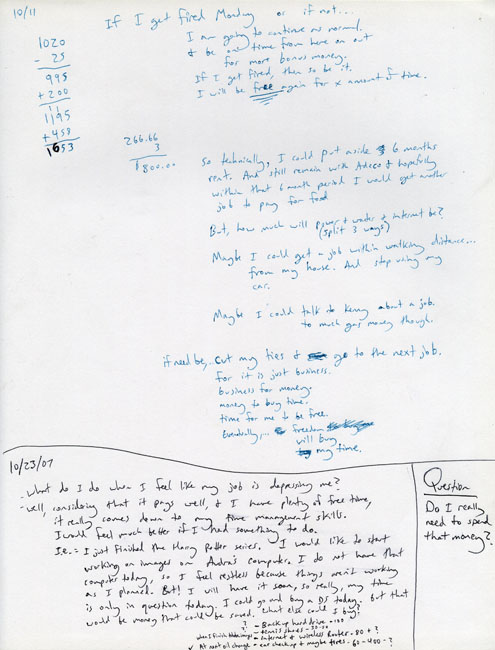 10/11
If I get fired Monday or if not...
I am going to continue as normal.
& be on time from here on out
for more bonus money.
If I get fired, then so be it.
I will be free again for x amount of time.
1020
- 25
995
+ 200
11
1195
+ 458
1653
266.66
3
800.00
So technically, I could put aside 6 months
rent. And still remain with Adeco & hopefully
within that 6 month period I would get another
job to pay for food
But, how much will power & water & internet be?
(split 3 ways)
Maybe I could get a job within walking distance...
from my house. And stop using my
car.
Maybe I could talk to Kenny about a job.
to much gas money though.
if need be,.. cut my ties & go to the next job.
for it is just business.
business for money.
money to buy time.
time for me to be free.
Eventually,... freedom
will buy
my time.
10/23/07
- What do I do when I feel like my job is depressing me?
- Well, considering that it pays well, & I have plenty of free time,
it really comes down to my time management skills.
I would feel much better if I had something to do.
I.e. = I just finished the Harry Potter series. I would like to start
working on images on Audra's computer. I do not have that
computer today, so I feel restless because things aren't working
as I planned. But! I will have it soon, so really, my time
is only in question today. I could go and buy a DS today. but that
would be money that could be saved. What else could I buy?
? - Backup hard drive - 100
- tennis shoes - 30-50
- internet & wireless Router - 80 + ?
✓ At next oil change - car checkup & maybe tires - 60 - 400 - ?
Question
Do I really
need to spend
that money?